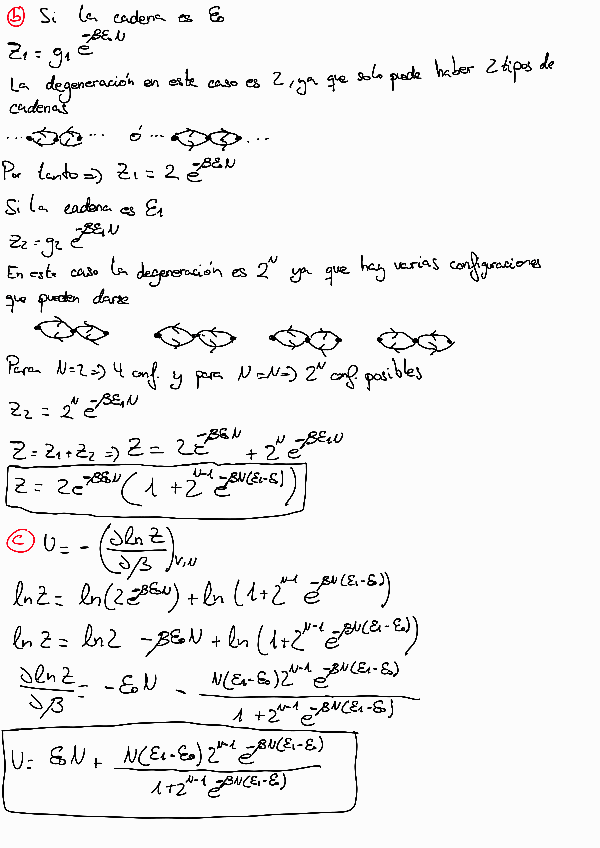 (b) Si la cadena es ε₀
Z₁ = g₁ e^{-βε₀N}
La degeneración en este caso es 2, ya que solo puede haber 2 tipos de
cadenas
... ... ó ... ...
Por tanto => Z₁ = 2 e^{-βε₀N}
Si la cadena es ε₁
Z₂ = g₂ e^{-βε₁N}
En este caso la degeneración es 2^N ya que hay varias configuraciones
que pueden darse
Para N=2 => 4 conf. y para N=N => 2^N conf. posibles
Z₂ = 2^N e^{-βε₁N}
Z = Z₁ + Z₂ => Z = 2e^{-βε₀N} + 2^N e^{-βε₁N}
Z = 2e^{-βε₀N} (1 + 2^{N-1} e^{-βN(ε₁-ε₀)})
(c) U = -(∂lnZ/∂β)_{V,N}
lnZ = ln(2e^{-βε₀N}) + ln(1+2^{N-1} e^{-βN(ε₁-ε₀)})
lnZ = ln2 - βε₀N + ln(1+2^{N-1} e^{-βN(ε₁-ε₀)})
∂lnZ/∂β = -ε₀N - N(ε₁-ε₀)2^{N-1} e^{-βN(ε₁-ε₀)} / 1+2^{N-1} e^{-βN(ε₁-ε₀)}
U = ε₀N + N(ε₁-ε₀)2^{N-1} e^{-βN(ε₁-ε₀)} / 1+2^{N-1} e^{-βN(ε₁-ε₀)}